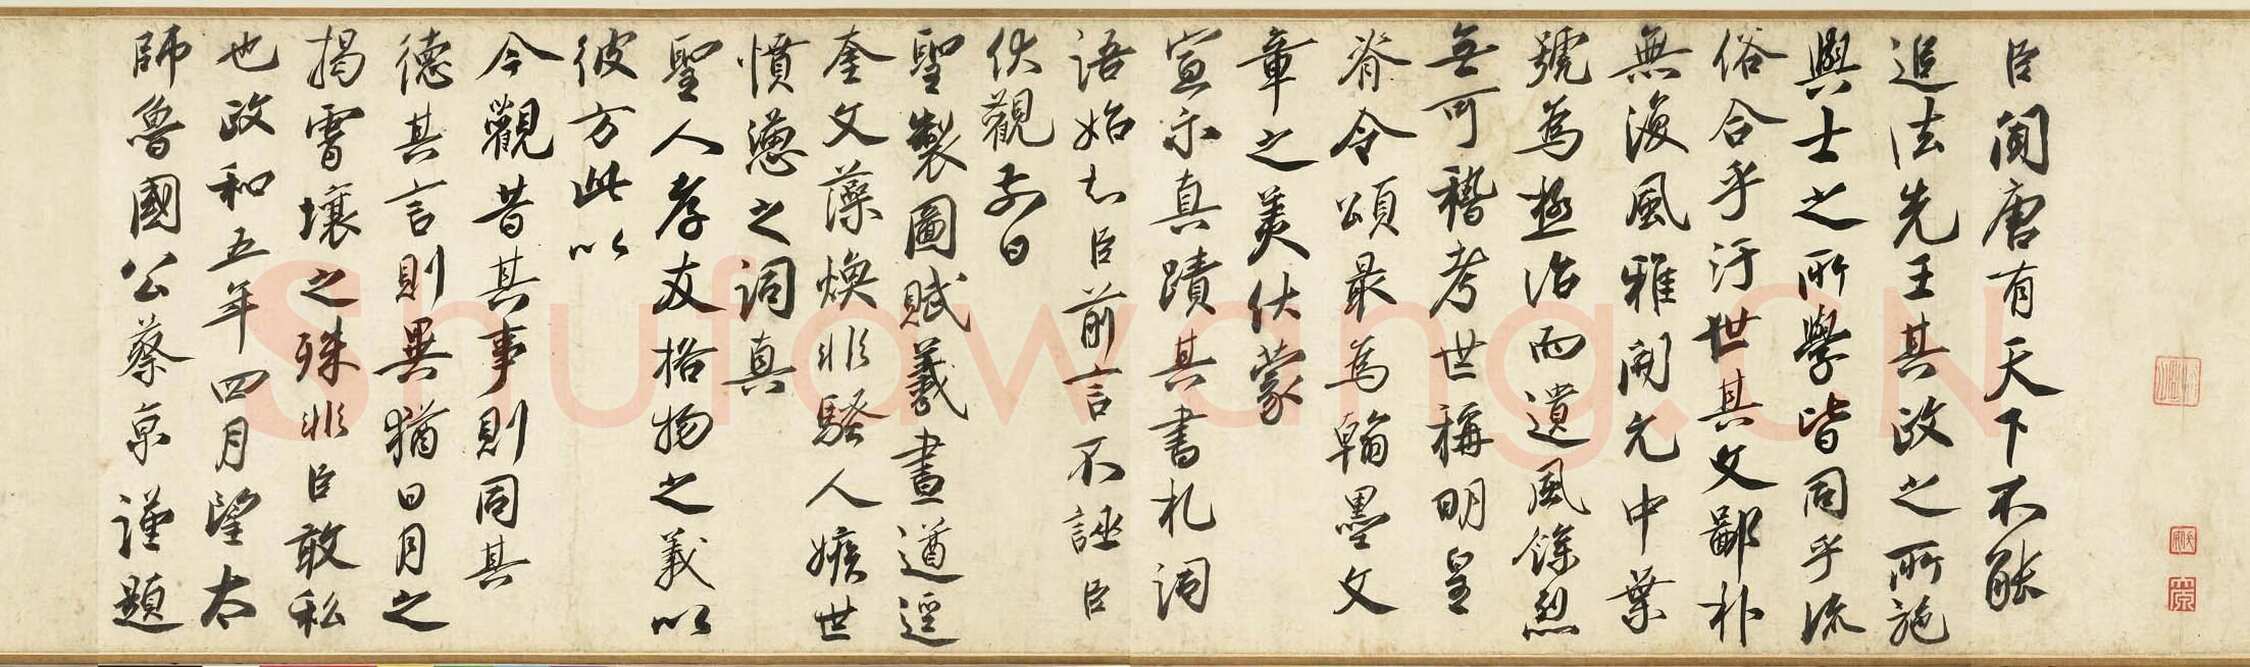 臣聞唐有天下不能
追法先王其政之所施
與士之所學皆同乎流
俗合乎汙世其文鄙朴
無復風雅開元中葉
號為極治而遺風餘烈
無可稽考世稱明皇
脊令頌最為翰墨文
章之美伏蒙
宣示真蹟其書札詞
語始知臣前言不誣臣
伏觀前日
聖製圖賦羲畫遒逕
奎文藻煥非騷人嫉世
憤懣之詞真
聖人孝友格物之義以
彼方此以
今觀昔其事則同其
德其言則異猶日月之
揭霄壤之殊非臣敢私
也政和五年四月望太
師魯國公蔡京謹題
Shufawang.CN